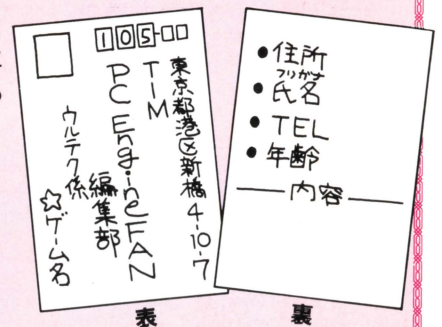 105-
東京都港区新橋4-10-7
TIM
PC EngineFAN
編集部
ウルテク係
☆ゲーム名
表
●住所
フリガナ
●氏名
●TEL
●年齢
内容
裏